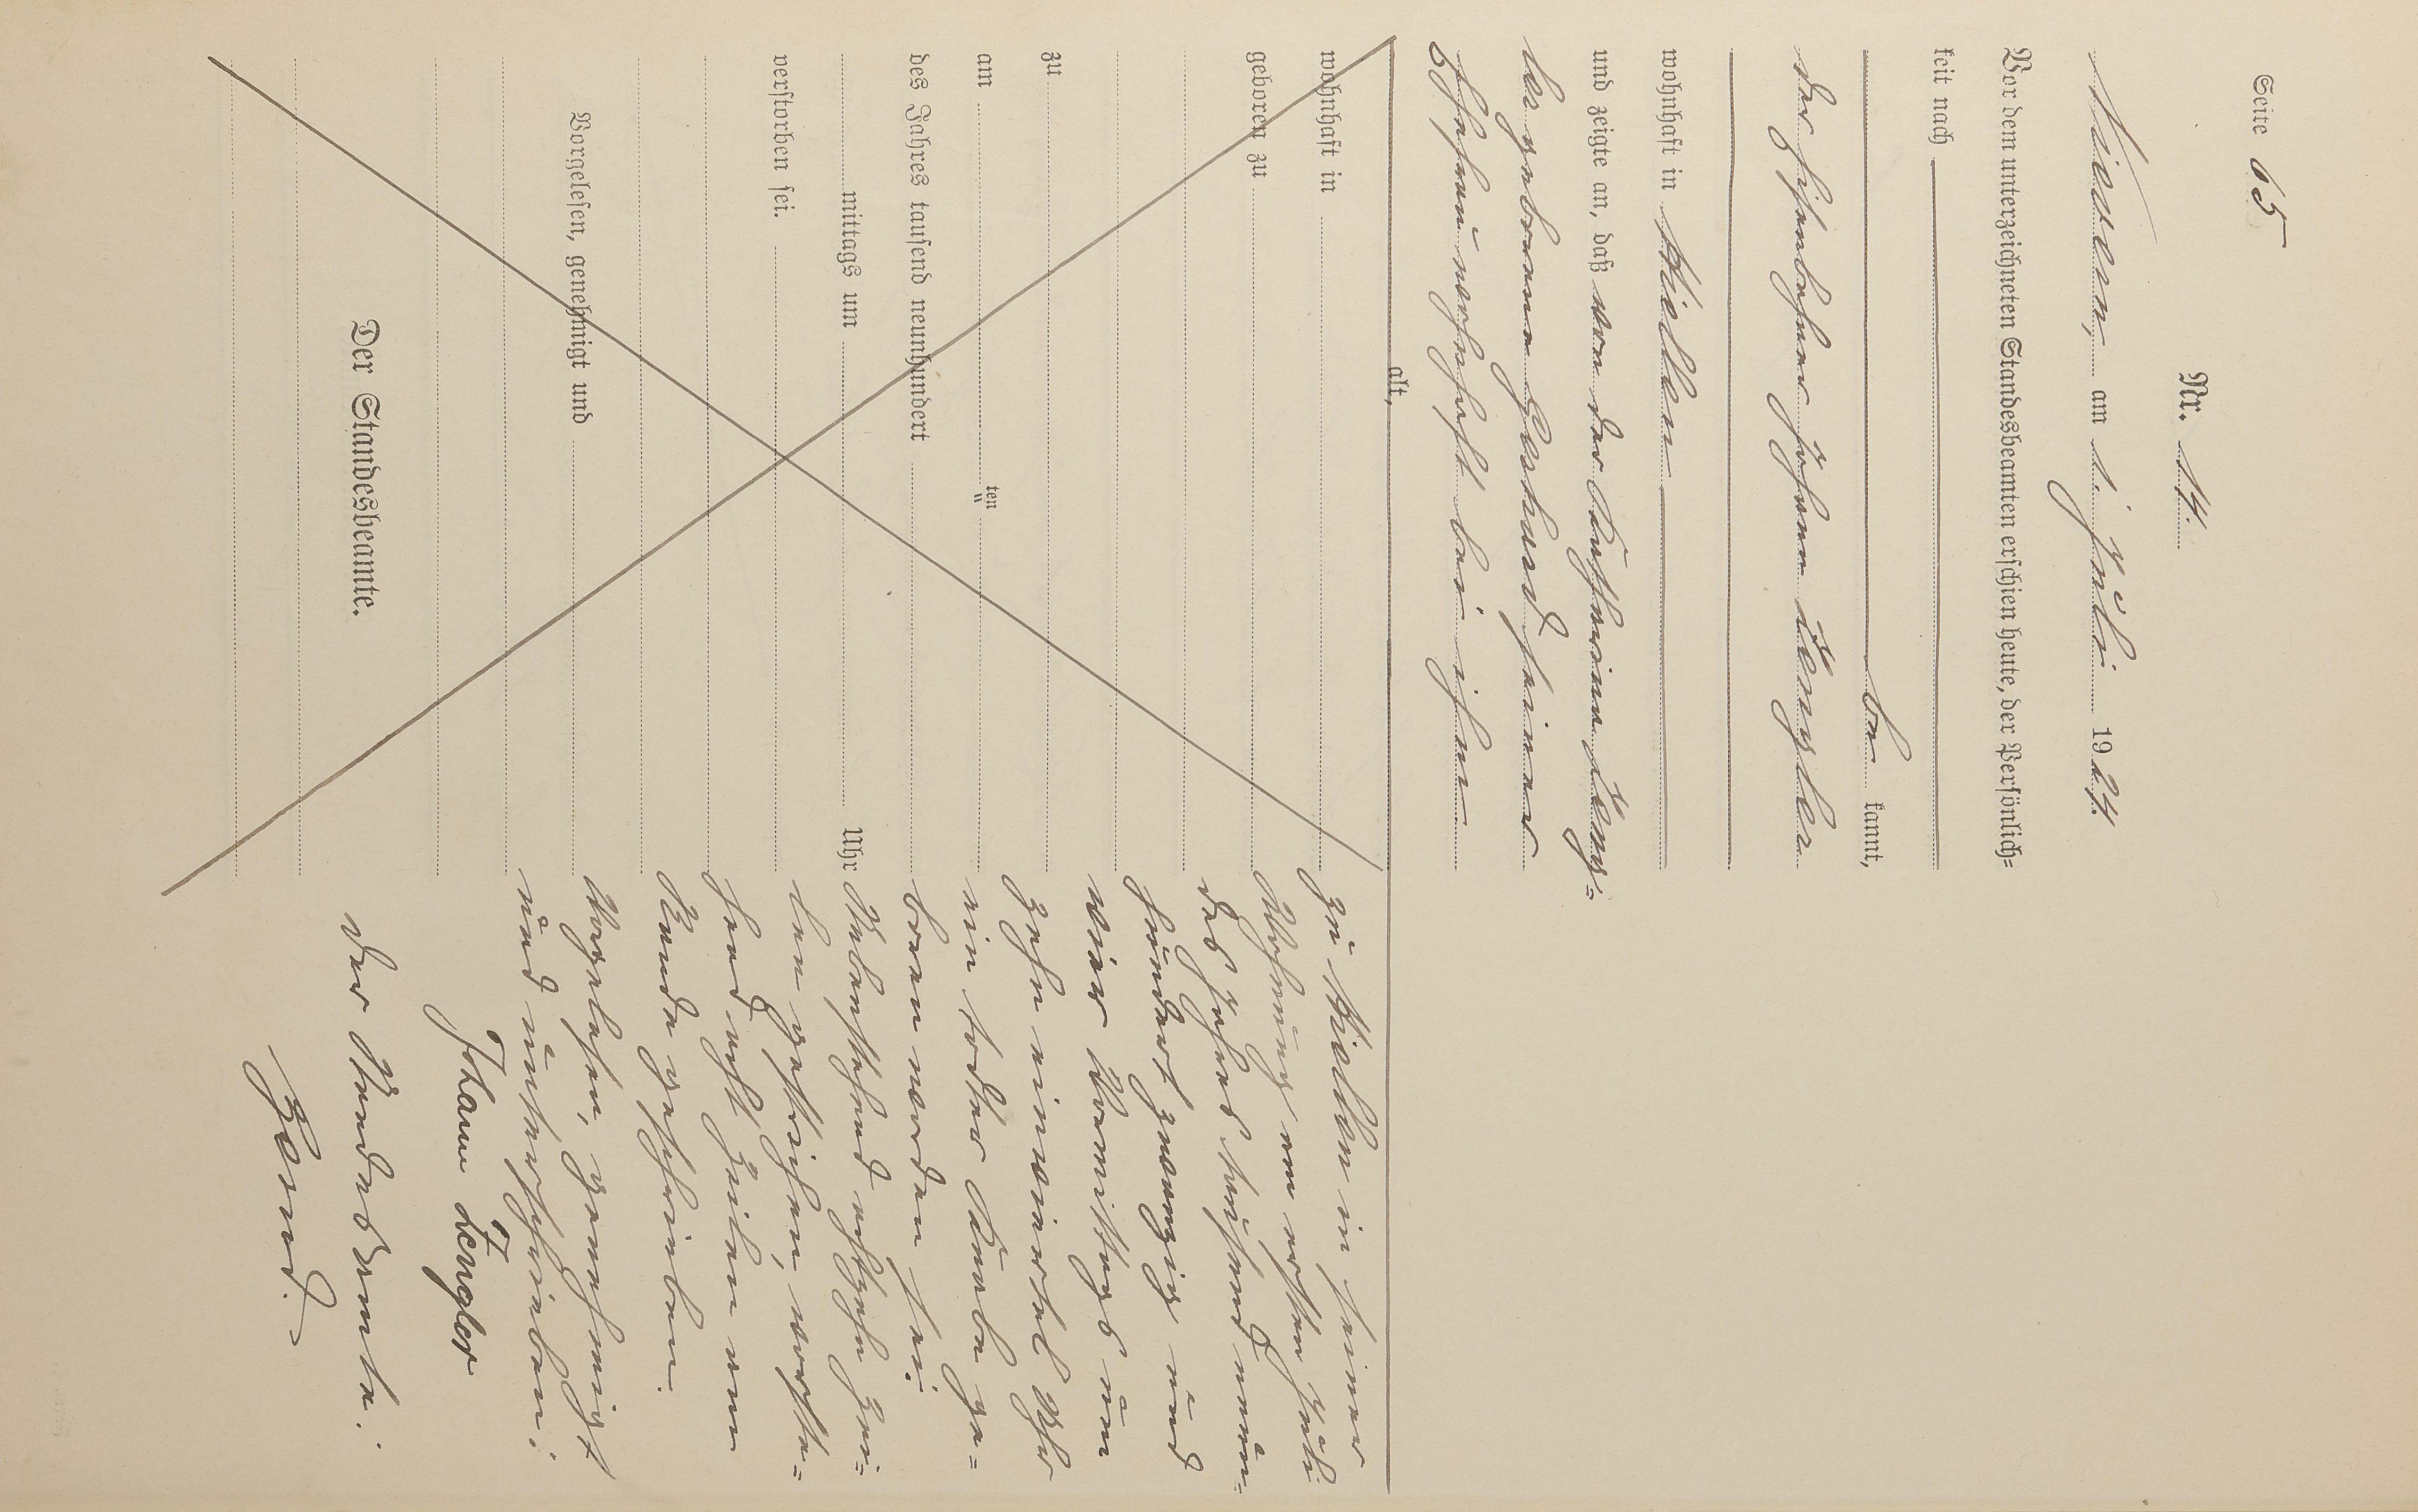 Seite 65
Nr. 14.
Nieven, am 1. Juli 1924.
Vor dem unterzeichneten Standesbeamten erschien heute, der Persönlich=
keit nach
be kannt,
der Eisenbahner Johann Zengler
wohnhaft in Mielken
und zeigte an, daß von der Katharina Zeng=
ler geborenen Gerhard seiner
Ehefrau wohnhaft bei ihm
alt,
wohnhaft in
geboren zu
zu
am ten
des Jahres tausend neunhundert
mittags um Uhr
verstorben sei.
Vorgelesen, genehmigt und
Der Standesbeamte.
zu Mielken in seiner
Wohnung am ersten Juli
des Jahres tausend neun=
hundert zwanzig und
vier Vormittags um
zehn einviertel Uhr
ein todter Knabe ge=
boren worden sei.
Nebenstehend achtzehn Zei=
len gestrichen, vorste=
hend acht Zeilen am
Rande geschrieben.
Vorgelesen, genehmigt
und unterschrieben:
Johann Zengler
Der Standesbeamte: